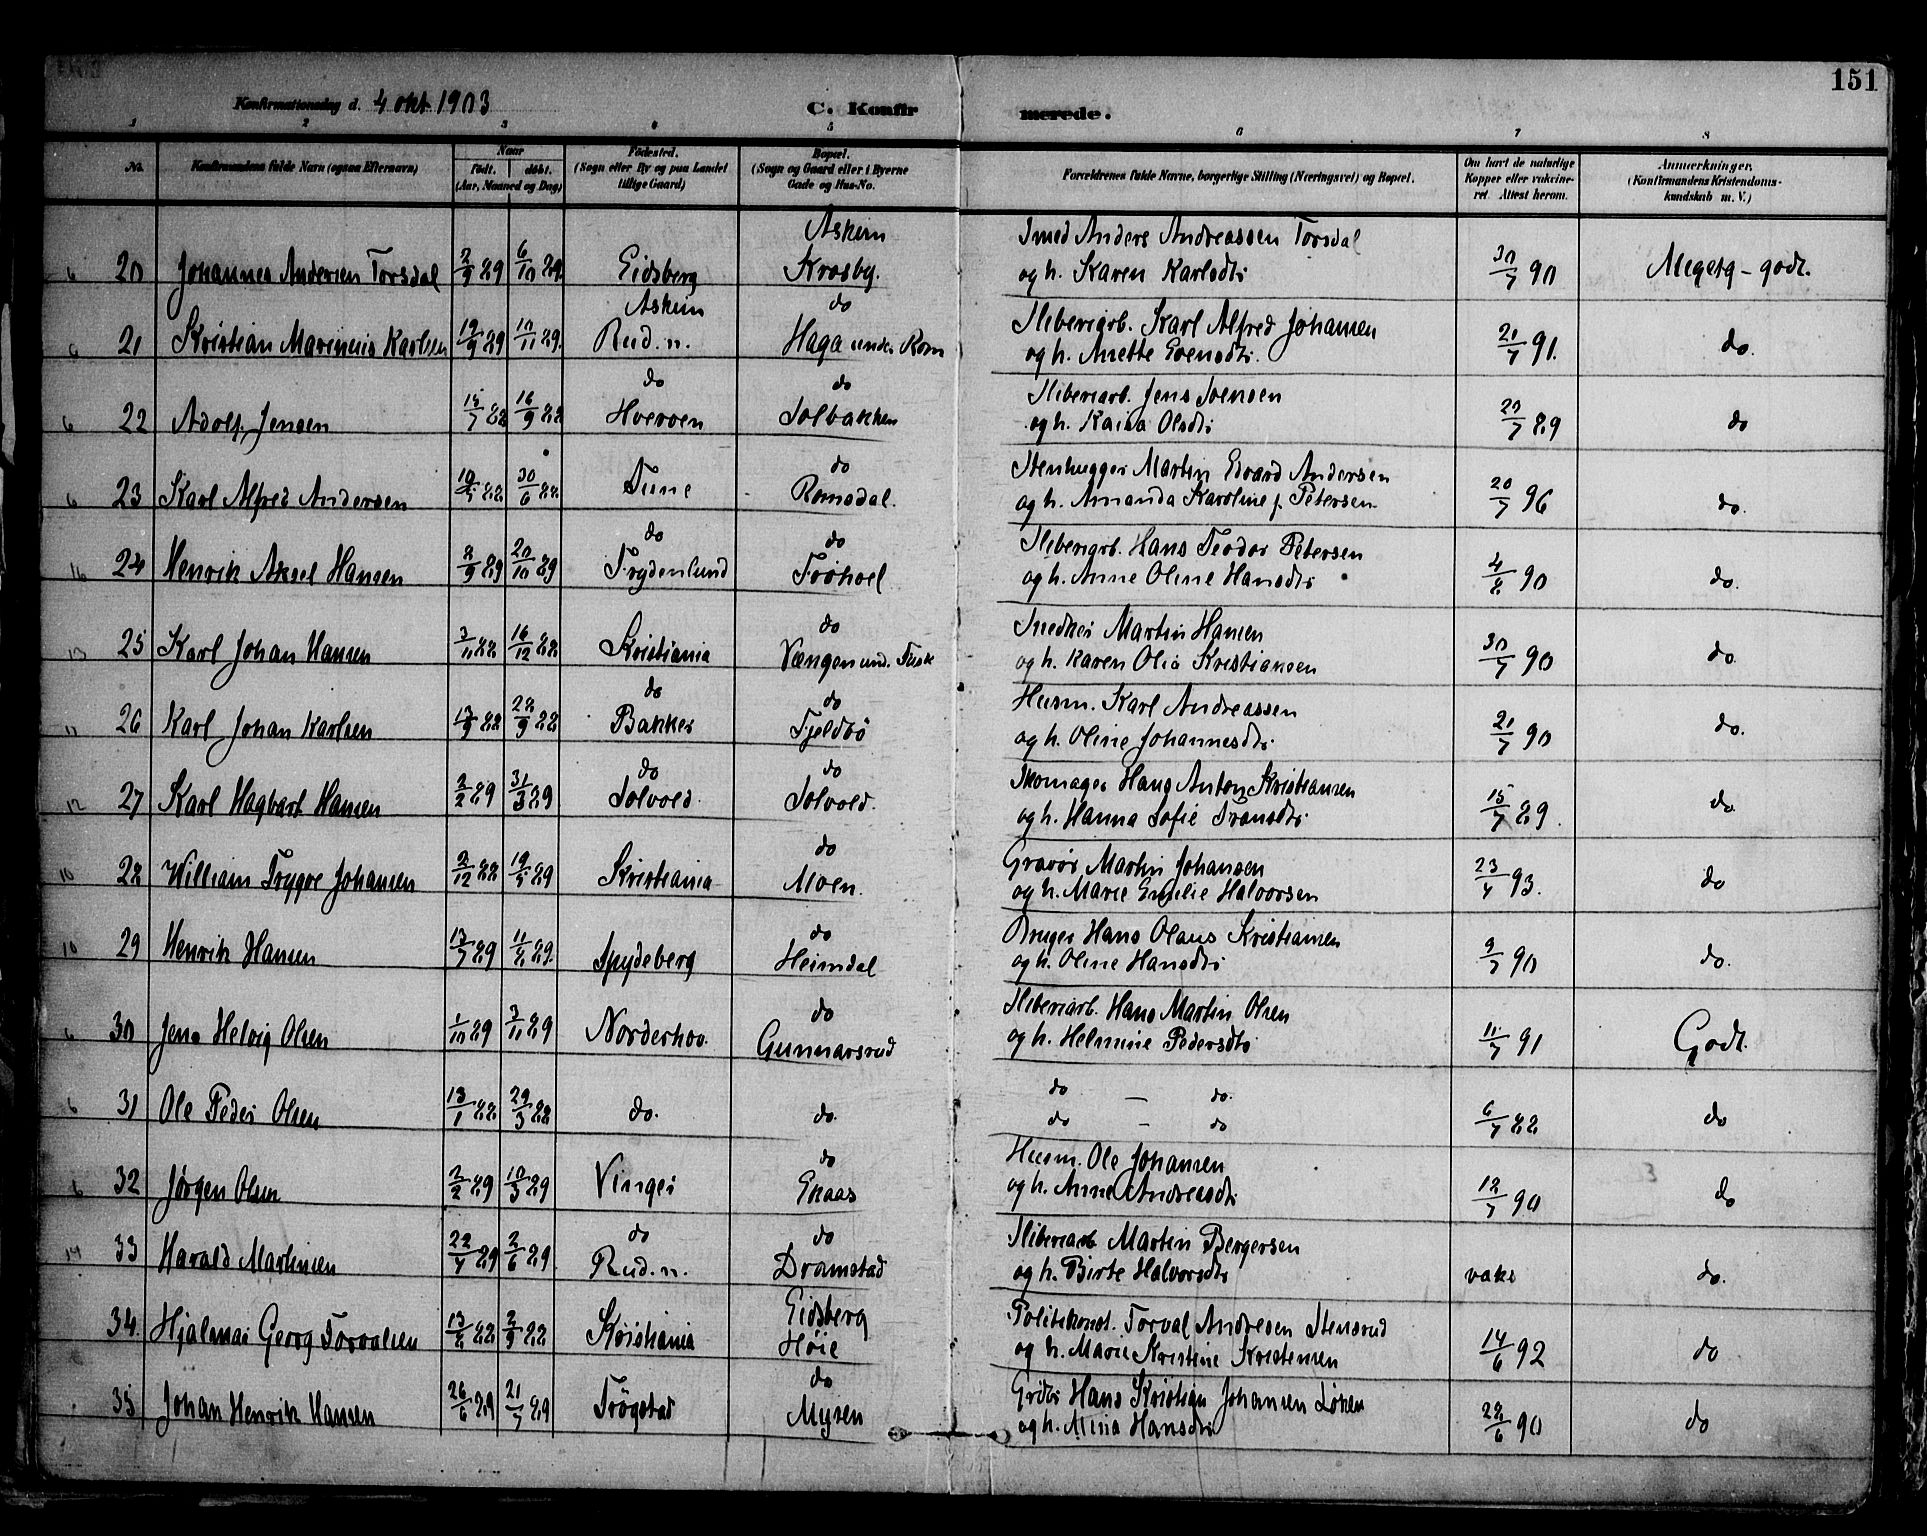 151
Konfirmationsdag d. 4 okt 1903
C. Konfirmerede.
1 2 3 4 5 6 7 8
No. Konfirmandens fulde Navn (ogsaa Efternavn) Naar Født. døbt. (Aar, Maaned og Dag) Fødested. (Sogn eller By og paa Landet tillige Gaard) Bopæl. (Sogn og Gaard eller i Byerne Gade og Hus-No. Forældrenes fulde Navne, borgerlige Stilling (Næringsvei) og Bopæl. Om havt de naturlige Kopper eller vakcineret. Attest herom. Anmærkninger, (Konfirmandens Kristendomskundskab m. V.)
Askim Smed Anders Andreassen Torsdal
6 20 Johannes Andersen Torsdal 2/9 89 6/10 89 Eidsberg Krosby. og h. Karen Karlsdtr 30/7 90 Megetg - godt.
Askim do Sliberiarb. Karl Alfred Johansen
6 21 Kristian Marinius Karlsen 19/9 89 10/11 89. Rud. n. Haga under Rom og h. Anette Evensdtr. 21/7 91. do.
do do Sliberiarb. Jens Svensen
6 22 Adolf Jensen 15/7 88 16/9 88 Hverven Solbakken og h. Kaisa Olsdtr 20/7 89 do
do Stenhugger Martin Edvard Andersen
6 23 Karl Alfred Andersen 10/5 88 30/6 88 Tune Romsdal. og h. Amanda Karoline f. Petersen 20/7 96 do.
do do Sliberiarb. Hans Teodor Petersen
16 24 Henrik Aksel Hansen 8/9 89 20/10 89 Frydenlund Frøhoel og h. Anne Oline Hansdtr 4/8 90 do.
do Snedker Martin Hansen
13 25 Karl Johan Hansen 3/11 88 16/12 88 Kristiania Vængen und. og h. Karen Olia Kristiansen 30/7 90 do.
do do Husm. Karl Andreassen
11 26 Karl Johan Karlsen 13/9 88 28/9 88 Bakker Fjeldbö og h. Oline Johannesdtr. 21/7 90 do.
do do Skomager Hans Anton Kristiansen
12 27 Karl Hagbart Hansen 2/2 89 31/3 89 Solvold. Solvold. og h. Hanna Sofie Fransdtr 15/7 89. do
do Gravør Martin Johansen
10 28 William Trygve Johansen 2/12 88 19/5 89 Kristiania Moen. og h. Marie Emilie Halvorsen 23/4 93. do
do Bruger Hans Olaus Kristiansen
10 29 Henrik Hansen 13/7 89 11/8 89. Spydeberg Heimdal og h. Oline Hansdtr 9/7 90 do.
do Sliberiarb. Hans Martin Olsen
6 30 Jens Helvig Olsen 1/10 89 3/11 89 Norderhov. Gunnarsrud og h. Helmine Pedersdtr 11/7 91 Godt.
do — do.
6 31 Ole Peder Olsen 13/1 88. 29/3 88 do. do. do — do 6/7 88 do
do Husm. Ole Johansen
6 32 Jørgen Olsen 2/2 89 10/3 89 Vinger Enaas og h. Anne Andreasdtr 12/7 90 do
do do Sliberiarb Martin Bergersen
14 33 Harald Martinsen 22/4 89 2/6 89. Rud. n. Dramstad og h. Birte Halvorsdtr vaks do.
Eidsberg Politikonst. Torval Andresen Stensrud
34. Hjalmar Georg Torvalsen 13/8 88 2/9 88 Kristiania Höie og h. Marie Kristine Kristensen 14/6 92 do
do Hans Kristian Johansen Løken
35 Johan Henrik Hansen 26/6 89 21/7 89 Trøgstad Mysen og h. Mina Hansdtr 28/6 90 do